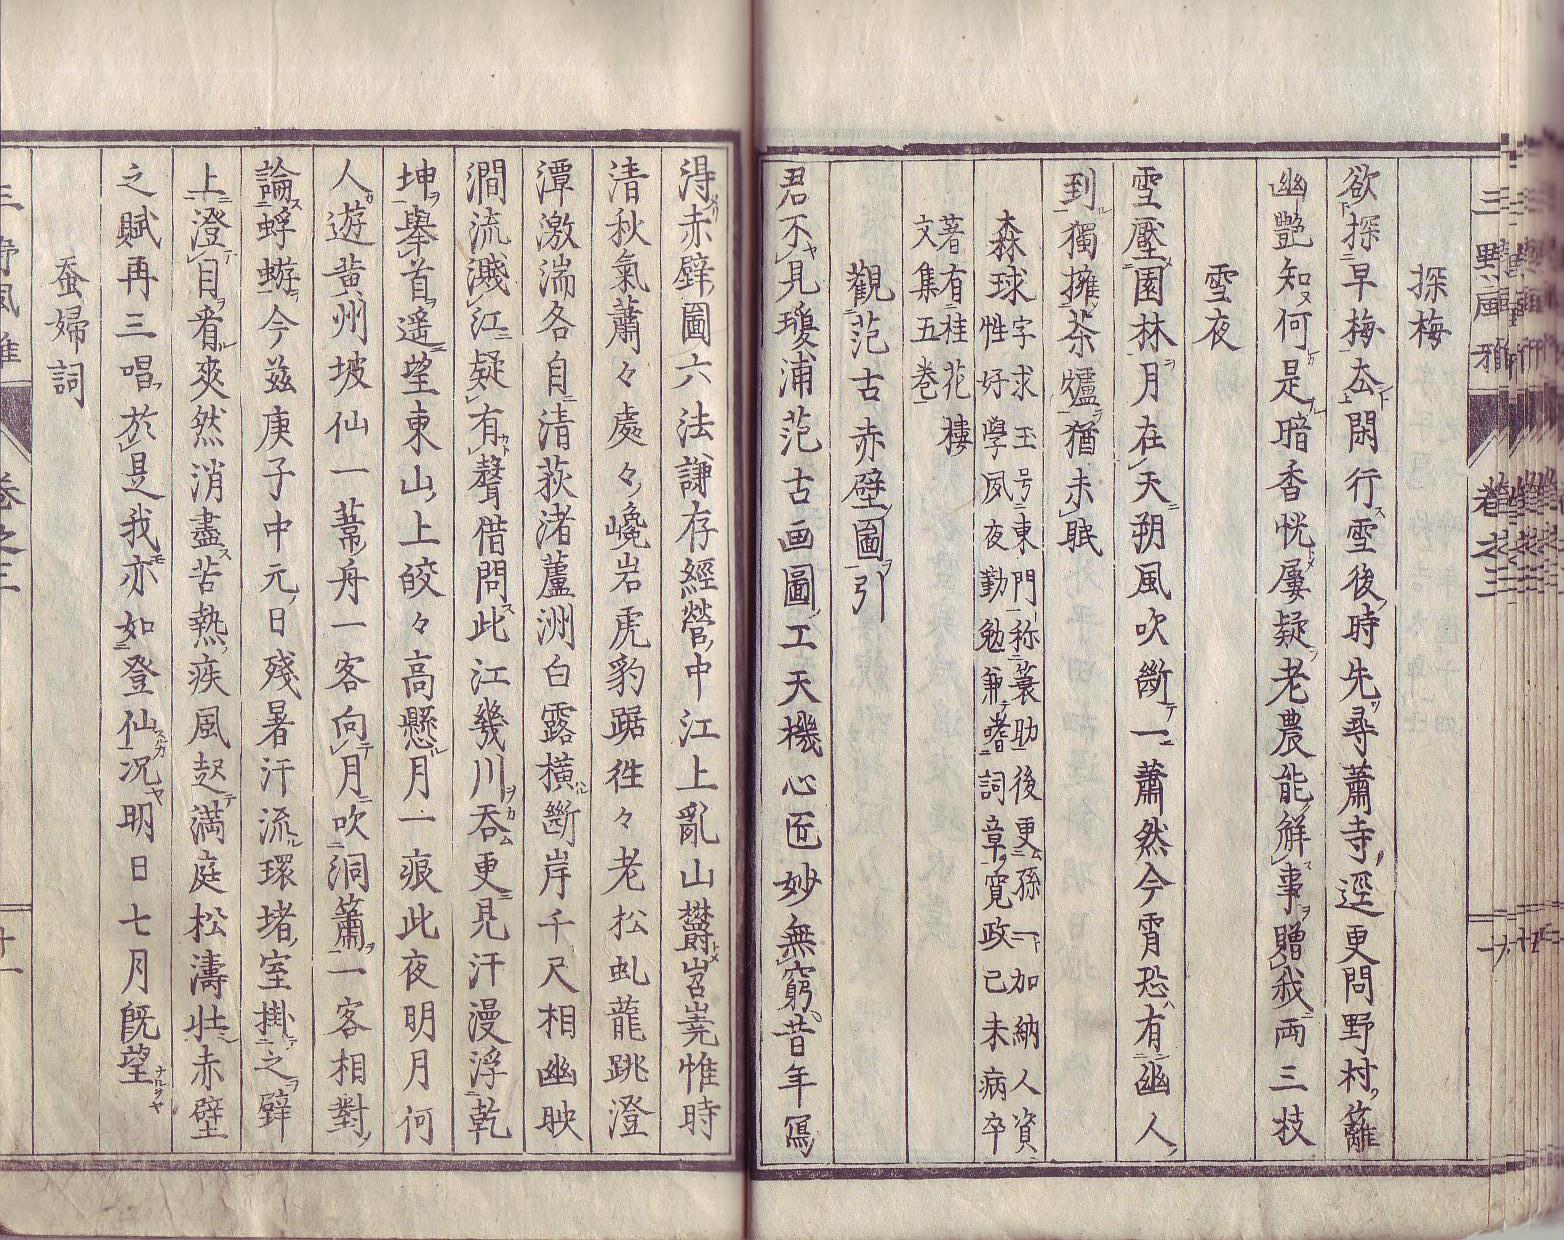 三野風雅　卷之三
探梅
欲探早梅太閑行雪後時先尋蕭寺逕更問野村籬
幽艶知何是暗香恍屢疑老農能觧事贈我両三枝
雪夜
雪壓園林月在天朔風吹断一蕭然今宵恐有幽人
到獨擁茶爐猶未眠
森球字求玉号東門称簑助後更孫一加納人資
性好学夙夜勤勉兼嗜詞章寛政己未病卒
著有桂花樓
文集五巻
觀范古赤壁圖引
君不見瓊浦范古画圖工天機心匠妙無窮昔年寫
得赤壁圖六法謙存經營中江上亂山欝岧嶤惟時
清秋氣蕭々處々巉岩虎豹踞徃々老松虬龍跳澄
潭激湍各自清荻渚蘆洲白露橫断岸千尺相幽映
澗流濺江疑有聲借問此江幾川吞更見汗漫浮乾
坤擧首遥望東山上皎々高懸月一痕此夜明月何
人遊黄州坡仙一葦舟一客向月吹洞簫一客相對
論蜉蝣今茲庚子中元日殘暑汗流環堵室掛之壁
上澄目看爽然消盡苦熱疾風起滿庭松濤壮赤壁
之賦再三唱於是我亦如登仙况明日七月旣望
蚕婦詞
三野風雅　卷之三　十一